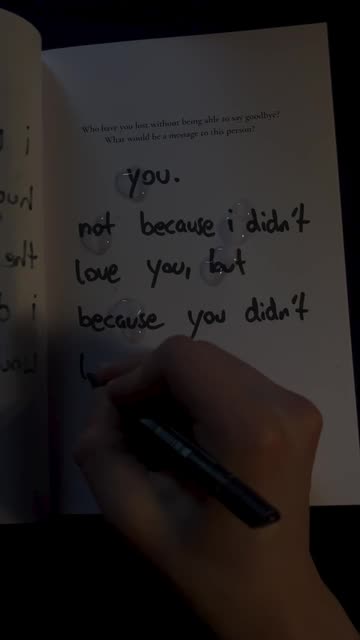 Who have you lost without being able to say goodbye?
What would be a message to this person?
you.
not because i didn't
love you, but
because you didn't
l